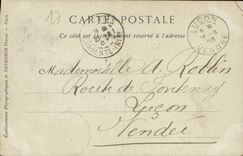 CARTE POSTALE
Ce côté est exclusivement réservé à l'adresse
LUÇON
VENDÉE
Mademoiselle A. Rollin
Route de Fontenay
Luçon
Vendée
Etablissements Photographiques de NEURDEIN Frères. — Paris